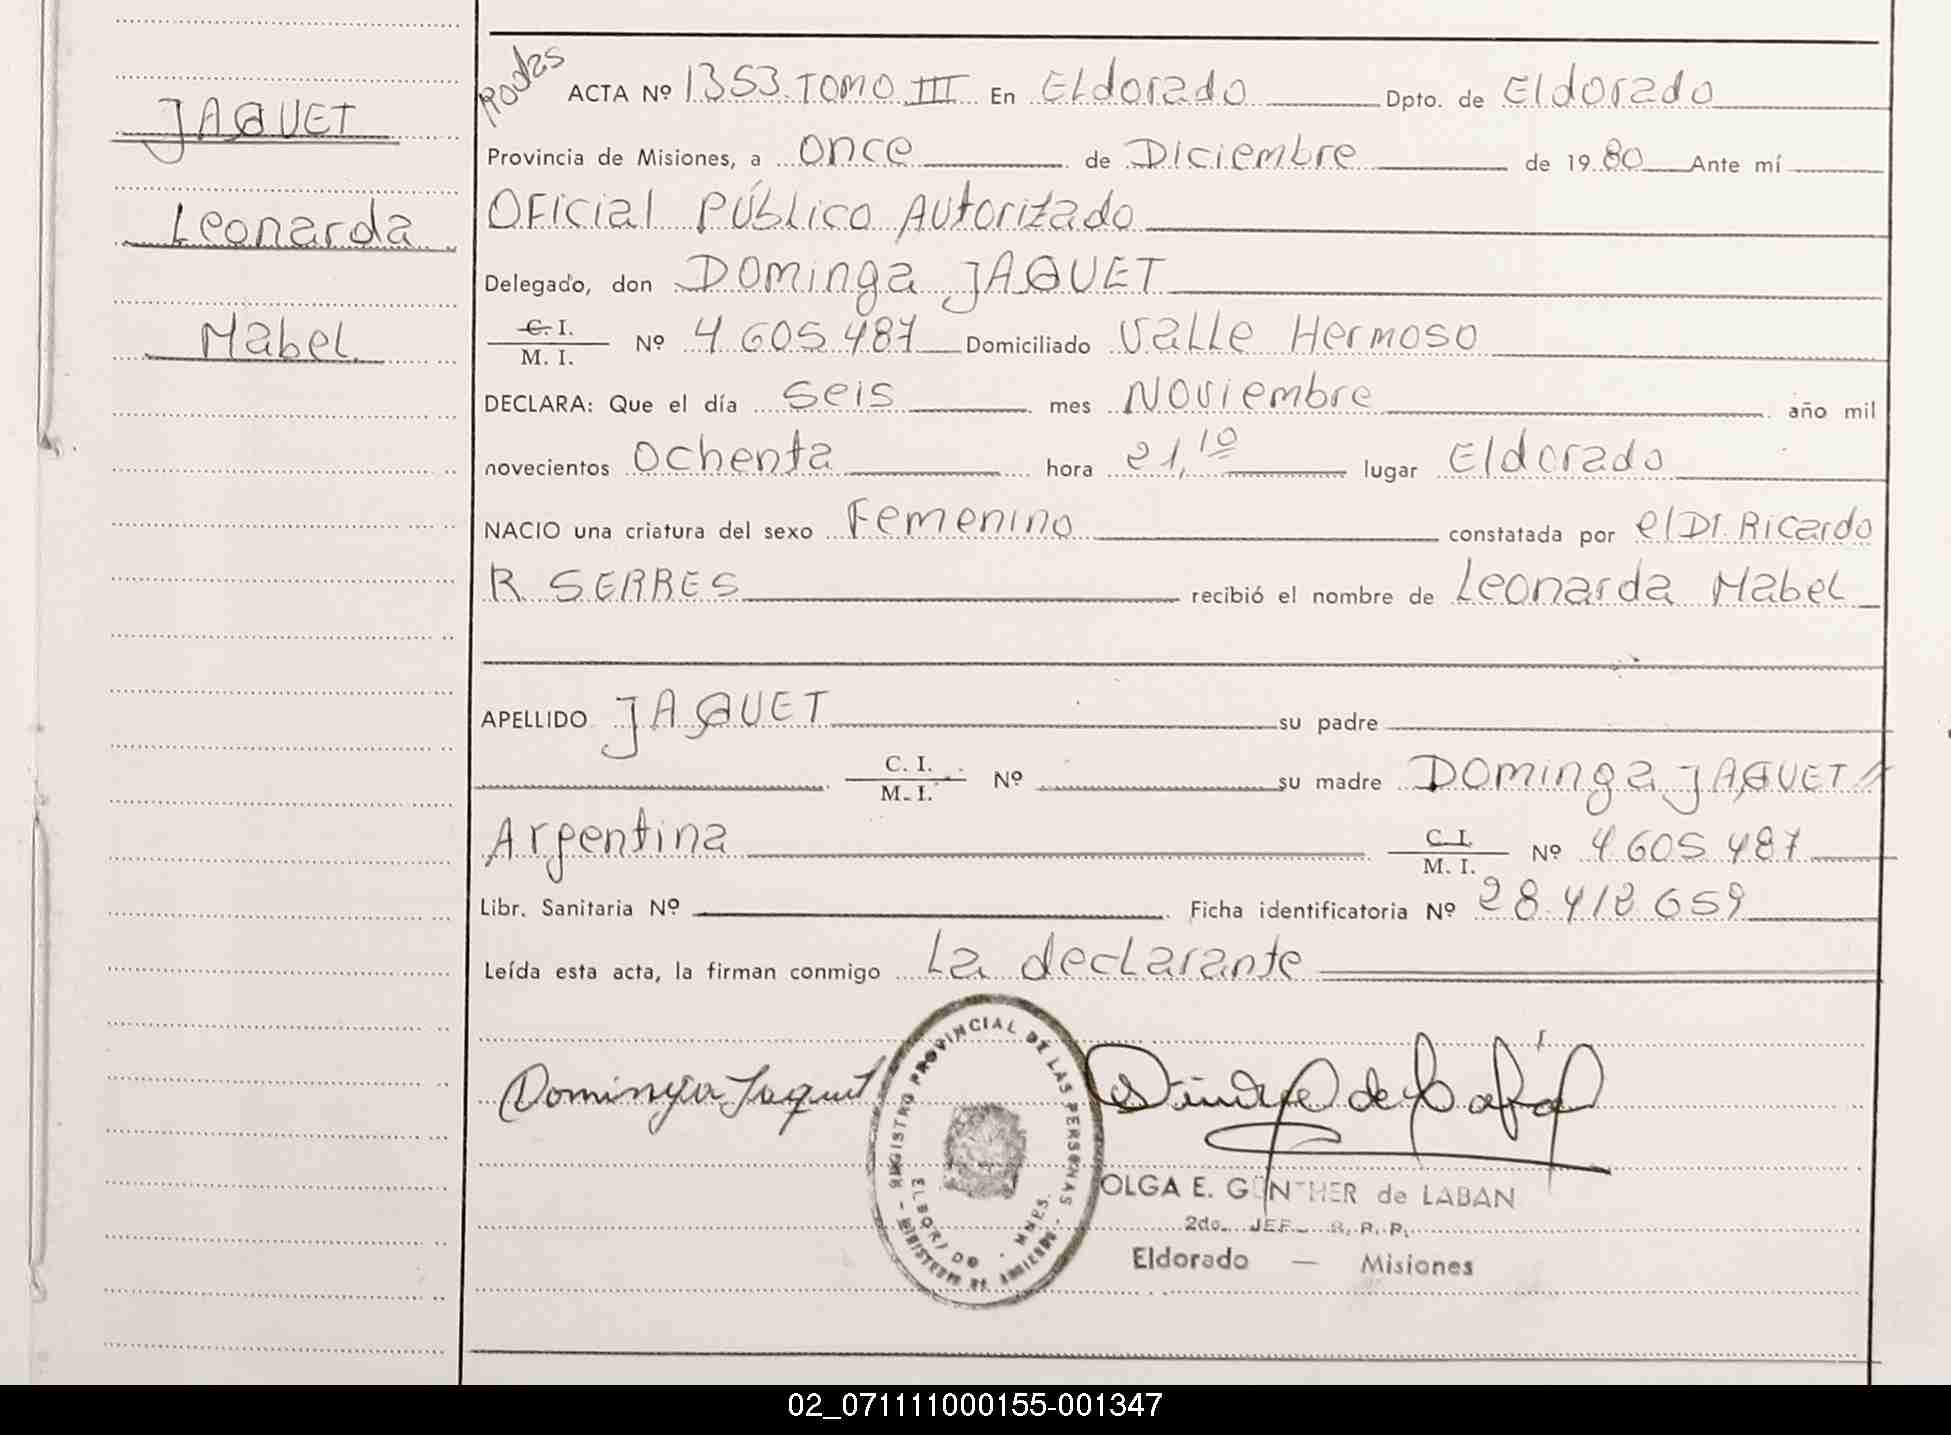 JAQUET
Leonarda
Mabel
Rodas
ACTA Nº 1353 TOMO III En ELdorado Dpto. de Eldorado
Provincia de Misiones, a once de Diciembre de 1980 Ante mí
Oficial Público Autorizado
Delegado, don Dominga JAQUET
C. I.
M. I. Nº 4.605.487 Domiciliado Valle Hermoso
DECLARA: Que el día seis mes Noviembre año mil
novecientos ochenta hora 21,10 lugar Eldorado
NACIO una criatura del sexo Femenino constatada por el Dr. Ricardo
R. SERRES recibió el nombre de Leonarda Mabel
APELLIDO JAQUET su padre
C. I.
M. I. Nº su madre Dominga JAQUET
Argentina C. I.
M. I. Nº 4.605.487
Libr. Sanitaria Nº Ficha identificatoria Nº 28.412.659
Leída esta acta, la firman conmigo La declarante
Dominga Jaquet
REGISTRO PROVINCIAL DE LAS PERSONAS
MNES.
OLGA E. GÜNTHER de LABAN
2do. JEFE R. P. P.
Eldorado — Misiones
02_071111000155-001347